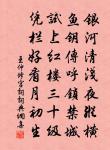 銀河清淺夜縱橫
魚鑰傳呼鎖禁城
試上紅樓三十級
凭欄好看月初生
王仲修宮詞詞典網集